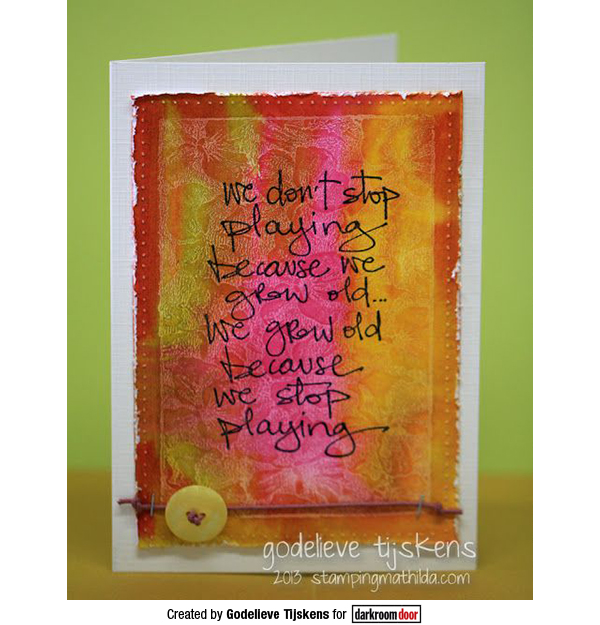 we don't stop
playing
because we
grow old...
we grow old
because
we stop
playing
godelieve tijskens
2013 stampingmathilda.com
Created by Godelieve Tijskens for darkroomdoor